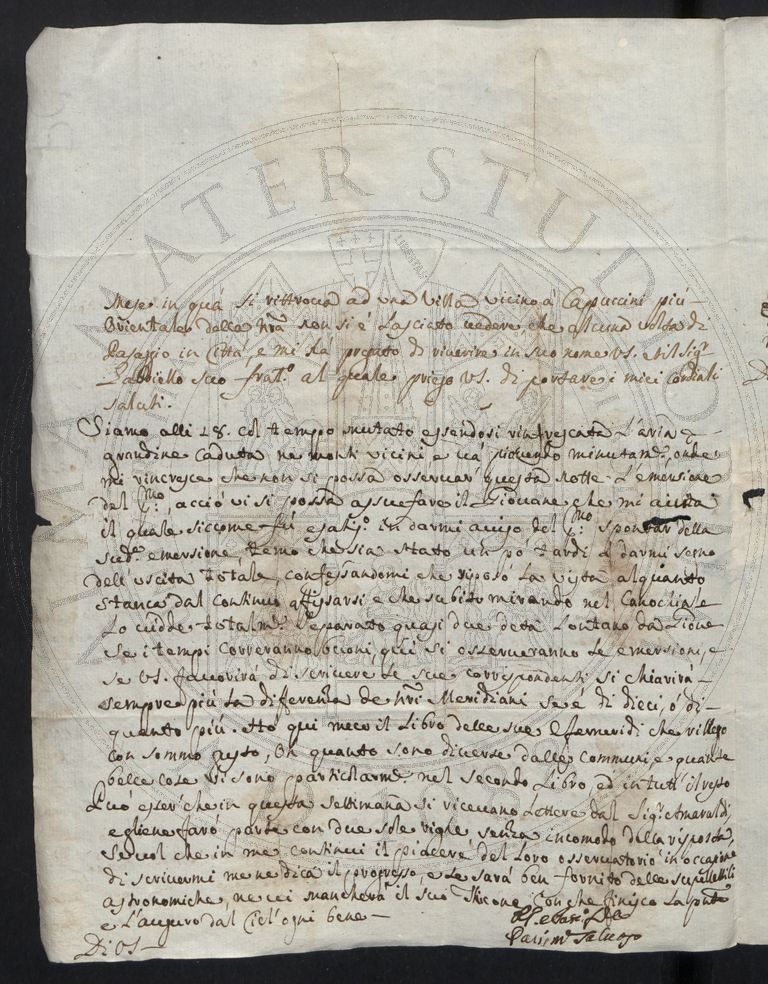 Mese in quà si ritrova ad una Villa vicino à Cappuccini più
Orientale dalla nrã non si è lasciato vedere, che alcuna volta di
Pasaggio in Città, e mi hà pregato di riverire in suo nome VS. e il Sigr
Gabriello suo frat.o al quale priego VS. di portare i miei cordiali
saluti.
Siamo alli 28. col tempo mutato essendosi rinfrescata l'aria e
grandine caduta ne monti vicini e và piovendo minutam.e, onde
mi rincresce che non si possa osservar questa notte l'emersione
del p.mo, acciò vi si possa assuefare il Giovane che mi aiuta
il quale siccome fù esatiss.o in darmi aviso del p.mo spontar della
sud.a emersione, temo che sia stato un pò tardi à darmi segno
dell'uscita totale, confessandomi che riposò la vista alquanto
stanca dal continuo affisarsi e che subito mirando nel Canochiale
lo vidde totalm.e separato quasi due deta lontano da Giove
Se i tempi correranno buoni, quì si osserveranno le emersioni, e
se VS. favorirà di scrivere le sue corrispondenti si chiarirà
sempre più la differenza de nrĩ Meridiani se è di dieci, ò di
quanto più. Hò qui meco il libro delle sue Efemeridi che rileggo
con sommo gusto, On quanto sono diverse dalle communi, e quante
belle cose vi sono particolarm.e nel secondo libro ed in tutt'il resto
Può esser che in questa settimana si ricevano lettere dal Sigr Maraldi,
e gliene farò parte con due sole righe senza incomodo della risposta,
se vuol che in me continui il piacere del loro osservatorio in occasione
di scrivermi me ne dica il progresso, e se sarà ben fornito delle supellettili
astronomiche, ne ci mancherà il suo Ticone, con che finisco la pñte
e l'auguro dal Ciel'ogni bene
Di VS